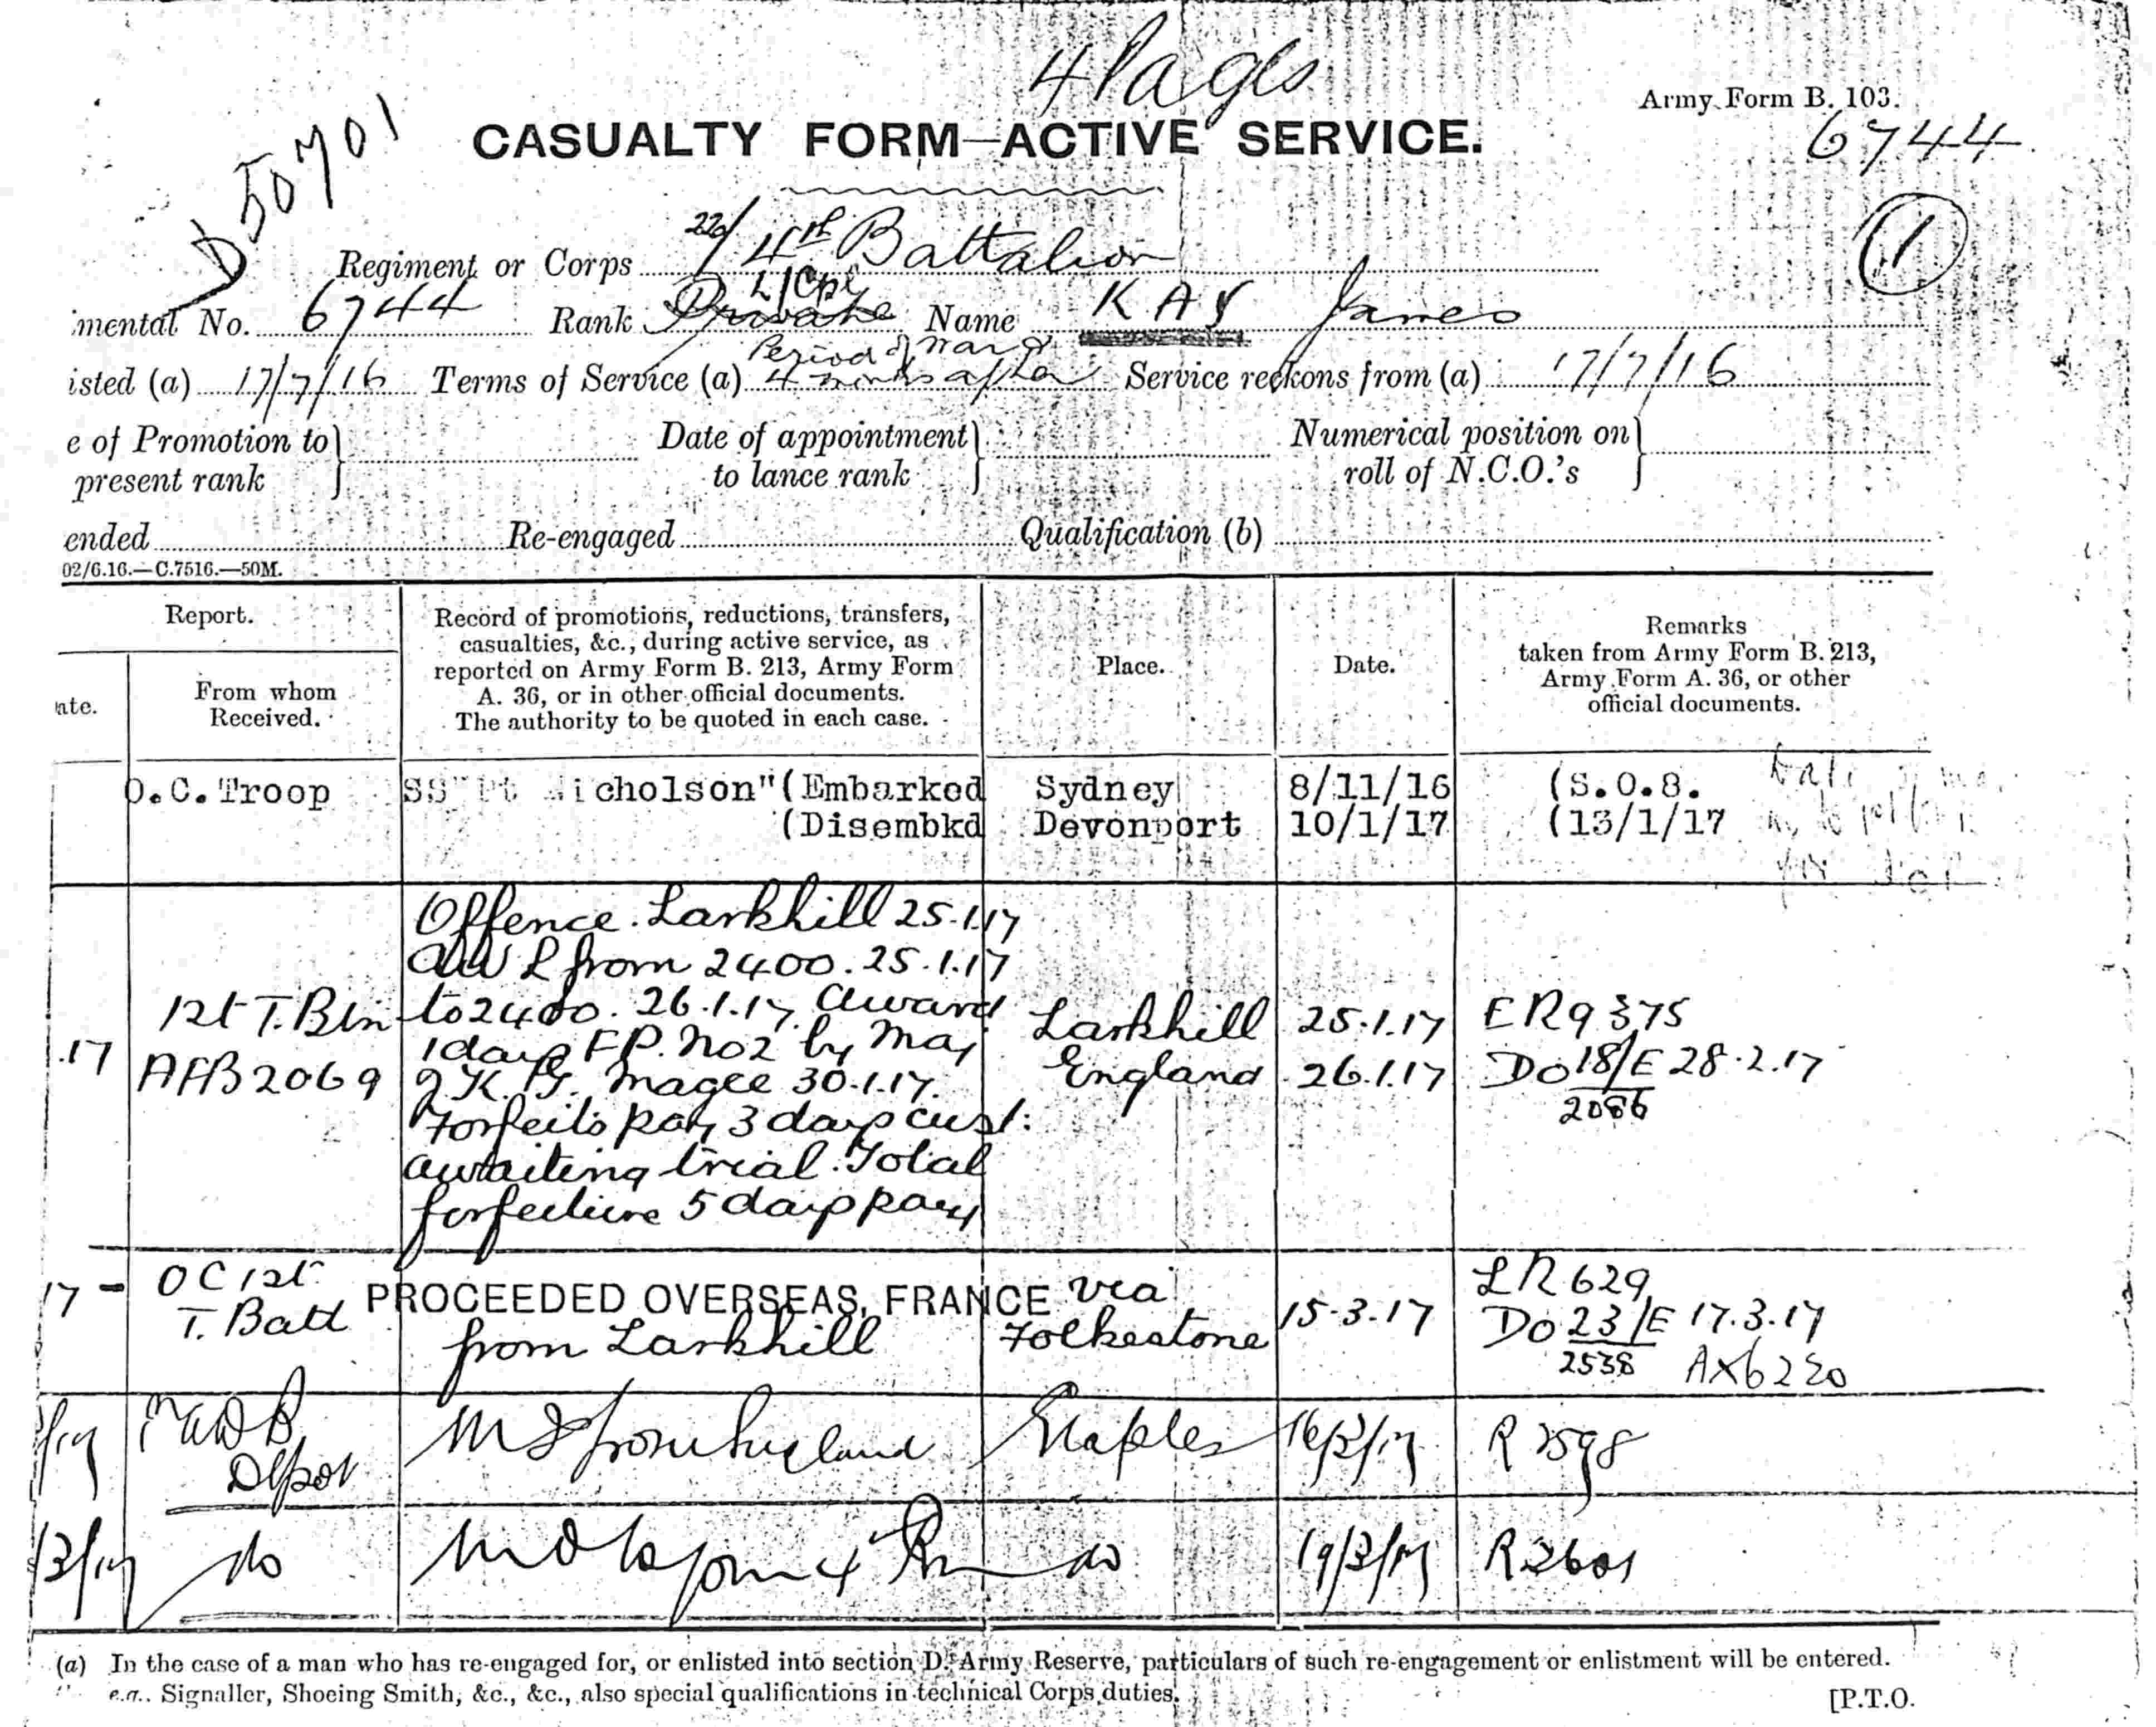 4 Pages
Army Form B. 103.
6744
D 50701
CASUALTY FORM—ACTIVE SERVICE.
1
Regiment or Corps 22/4th Battalion
L/Cpl
mental No. 6744 Rank Private Name KAY James
Period of War &
isted (a) 17/7/16 Terms of Service (a) 4 months after Service reckons from (a) 17/7/16
e of Promotion to present rank
Date of appointment to lance rank
Numerical position on roll of N.C.O.'s
ended Re-engaged Qualification (b)
02/6.16.—C.7516.—50M.
Report.
ate.
From whom
Received.
Record of promotions, reductions, transfers,
casualties, &c., during active service, as
reported on Army Form B. 213, Army Form
A. 36, or in other official documents.
The authority to be quoted in each case.
Place.
Date.
Remarks
taken from Army Form B. 213,
Army Form A. 36, or other
official documents.
O.C. Troop SS "Pt Nicholson" (Embarked Sydney 8/11/16 (S.O.8.
(Disembkd Devonport 10/1/17 (13/1/17
.17
1st T. Bln
AFB2069
Offence. Larkhill 25.1.17
AWL from 2400. 25.1.17
to 2400. 26.1.17. Award
1 days F.P. No2 by Maj
Magee 30.1.17.
Forfeits pay 3 days cust:
awaiting trial. Total
forfeiture 5 days pay
Larkhill
England
25.1.17
26.1.17
ER9375
DO 18/E 28.2.17
2086
17 -
OC 1st
T. Batt
PROCEEDED OVERSEAS, FRANCE via
from Larkhill
Folkestone
15-3.17
LR629
DO 23/E 17.3.17
2538 AX6220
Depot
M I from England
Etaples
16/3/17
R 2598
/3/17
do
M O to join 4 Bn
do
19/3/17
R2601
(a) In the case of a man who has re-engaged for, or enlisted into section D Army Reserve, particulars of such re-engagement or enlistment will be entered.
e.g. Signaller, Shoeing Smith, &c., &c., also special qualifications in technical Corps duties.
[P.T.O.